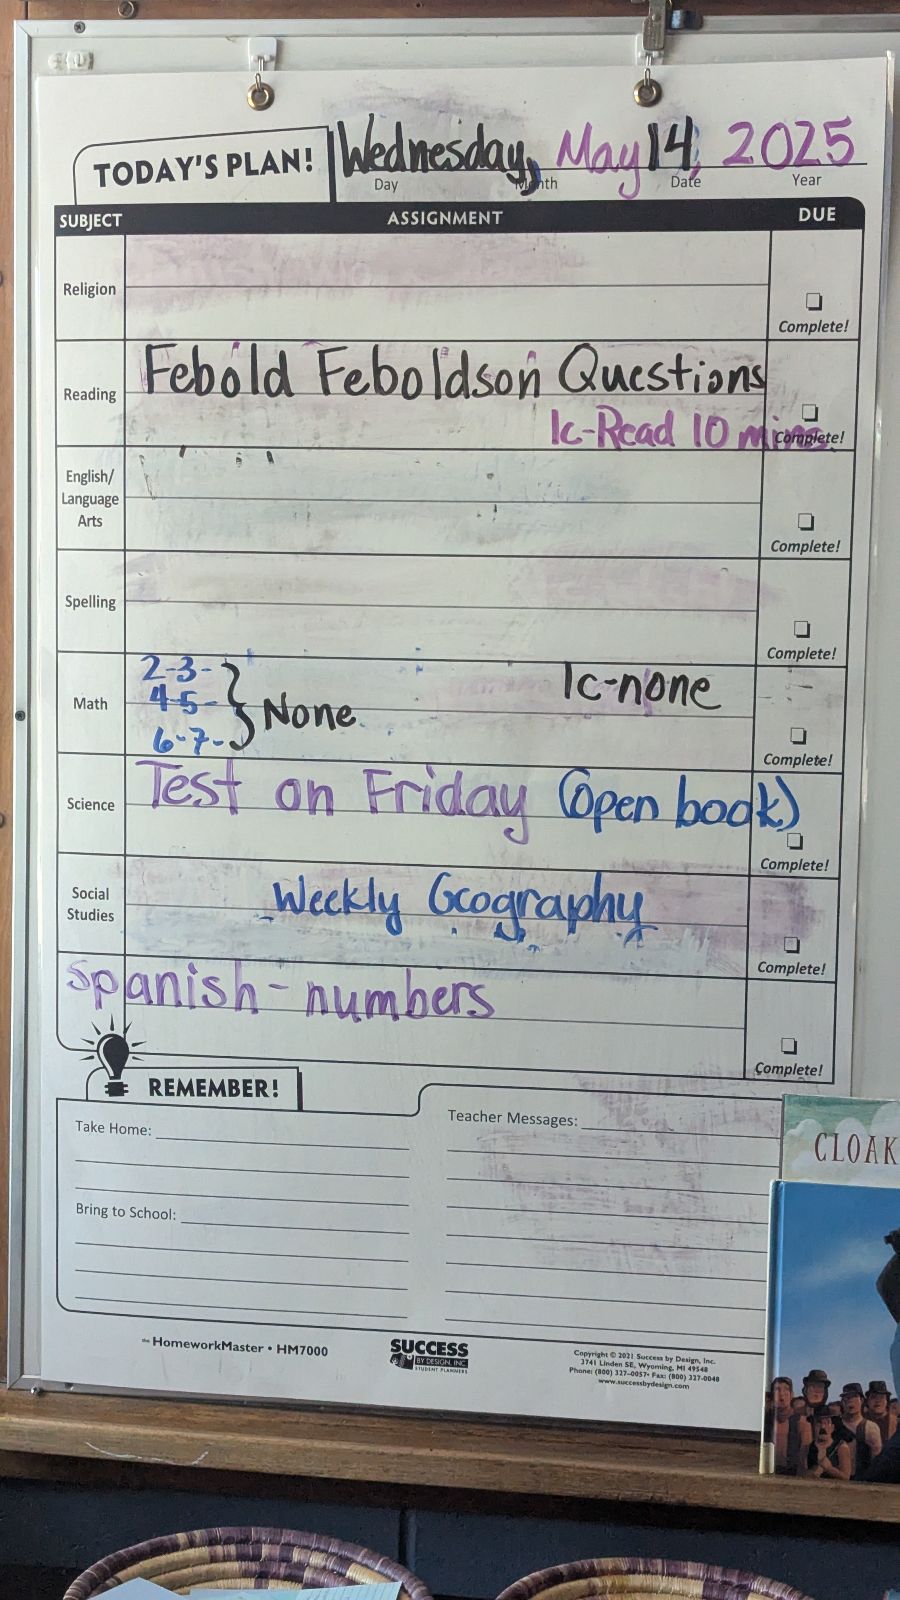 TODAY'S PLAN! Wednesday, May 14, 2025
Day Month Date Year
SUBJECT ASSIGNMENT DUE
Religion
Complete!
Reading Febold Feboldson Questions
1c-Read 10 mins.
Complete!
English/
Language
Arts
Complete!
Spelling
Complete!
Math
2-3-
4-5-
6-7-
} None
1c-none
Complete!
Science Test on Friday (open book)
Complete!
Social
Studies
Weekly Geography
Complete!
Spanish - numbers
Complete!
REMEMBER!
Take Home:
Bring to School:
Teacher Messages:
CLOAK
the HomeworkMaster • HM7000
SUCCESS
BY DESIGN, INC
STUDENT PLANNERS
Copyright © 2021 Success by Design, Inc.
3741 Linden SE, Wyoming, MI 49548
Phone: (800) 327-0057• Fax: (800) 327-0048
www.successbydesign.com